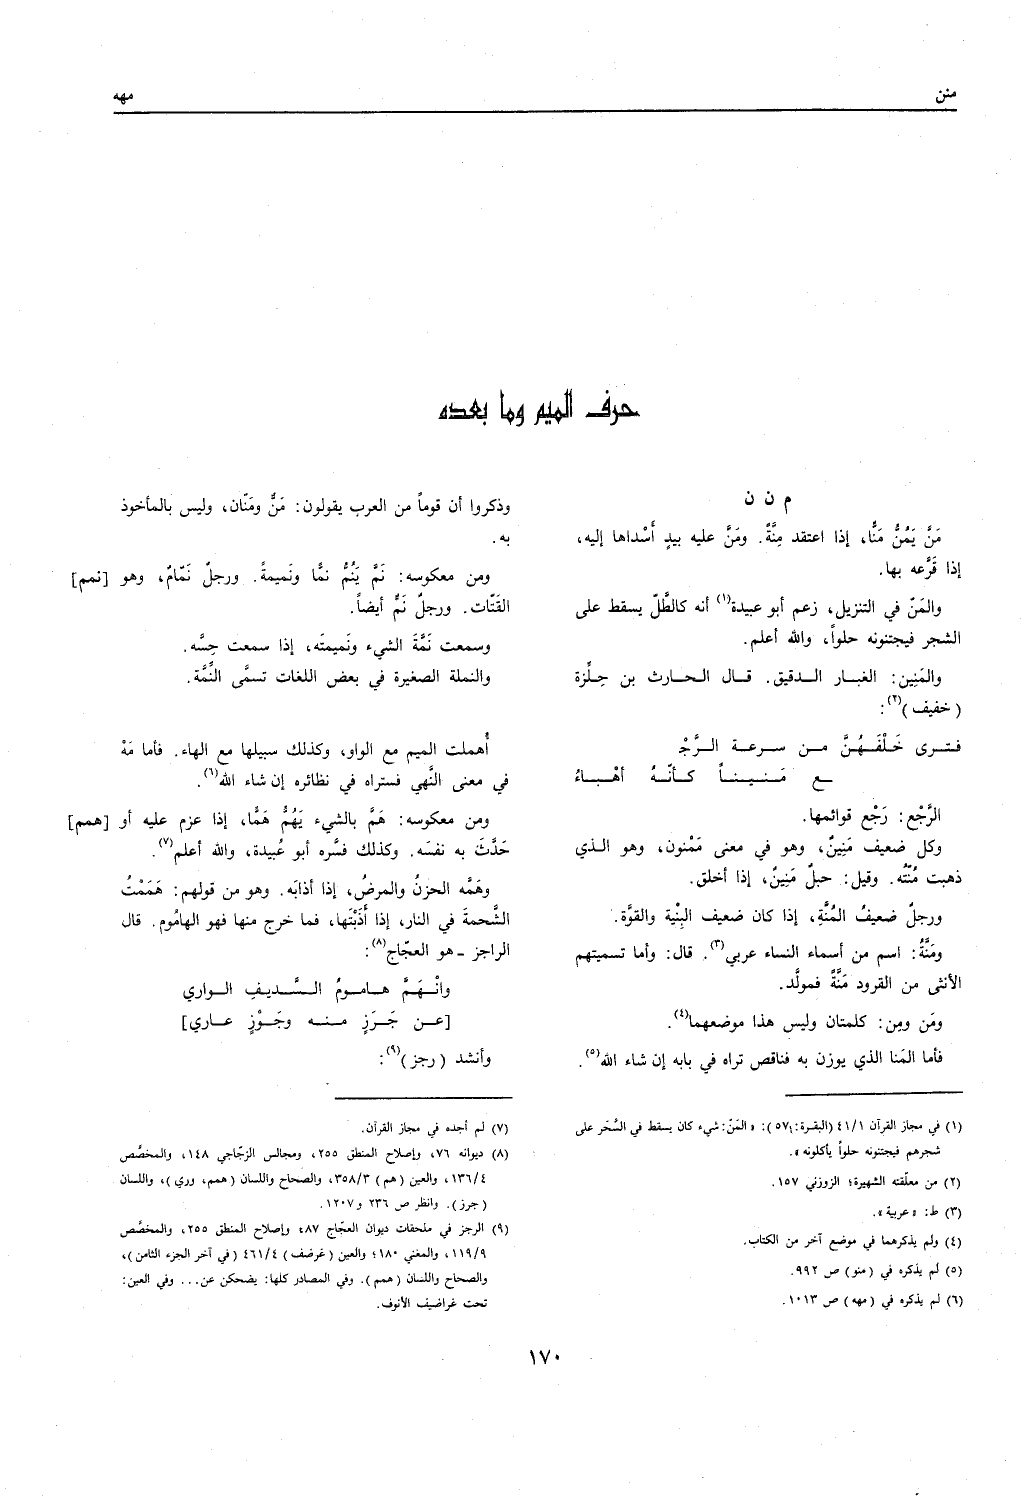 منن
مهه
حرف الميم وما بعده
م ن ن
مَنَّ يَمُنُّ مَنًّا، إذا اعتقد مِنَّةً. ومَنَّ عليه بيدٍ أَسْداها إليه،
إذا قَرَّعه بها.
والمَنّ في التنزيل، زعم أبو عبيدة(١) أنه كالطَّلّ يسقط على
الشجر فيجتنونه حلواً، والله أعلم.
والمَنِين: الغبار الدقيق. قال الحارث بن حِلِّزة
(خفيف)(٢):
فترى خَلْفَهُنَّ من سرعة الرَّجْـ
ـع مَنيناً كأنّهُ أهْباءُ
الرَّجْع: رَجْع قوائمها.
وكل ضعيف مَنِينٌ، وهو في معنى مَمْنون، وهو الذي
ذهبت مُنّتُه. وقيل: حبلٌ مَنِينٌ، إذا أخلق.
ورجلٌ ضعيفُ المُنَّةِ، إذا كان ضعيف البِنْية والقوَّة.
ومَنَّةُ: اسم من أسماء النساء عربي(٣). قال: وأما تسميتهم
الأنثى من القرود مَنَّةً فمولَّد.
ومَن ومِن: كلمتان وليس هذا موضعهما(٤).
فأما المَنا الذي يوزن به فناقص تراه في بابه إن شاء الله(٥).
وذكروا أن قوماً من العرب يقولون: مَنٌّ ومَنّان، وليس بالمأخوذ
به.
ومن معكوسه: نَمَّ يَنُمُّ نمًّا ونَميمةً. ورجلٌ نَمّامٌ، وهو [نمم]
القَتّات. ورجلٌ نَمٌّ أيضاً.
وسمعت نَمَّةَ الشيء ونَميمتَه، إذا سمعت حِسَّه.
والنملة الصغيرة في بعض اللغات تسمَّى النِّمَّة.
أُهملت الميم مع الواو، وكذلك سبيلها مع الهاء. فأما مَهْ
في معنى النَّهي فستراه في نظائره إن شاء الله(٦).
ومن معكوسه: هَمَّ بالشيء يَهُمُّ هَمًّا، إذا عزم عليه أو [همم]
حَدَّثَ به نفسَه. وكذلك فسَّره أبو عُبيدة، والله أعلم(٧).
وهَمَّه الحزنُ والمرضُ، إذا أذابَه. وهو من قولهم: هَمَمْتُ
الشَّحمةَ في النار، إذا أَذَبْتَها، فما خرج منها فهو الهامُوم. قال
الراجز ـ هو العجّاج(٨):
وانْهَمَّ هامومُ السَّديفِ الواري
[عن جَرَزٍ منه وجَوْزٍ عاري]
وأنشد (رجز)(٩):
(١) في مجاز القرآن ٤١/١ (البقرة: ٥٧): «المَنّ: شيء كان يسقط في السَّحَر على
شجرهم فيجتنونه حلواً يأكلونه».
(٢) من معلّقته الشهيرة؛ الزوزني ١٥٧.
(٣) ط: «عربية».
(٤) ولم يذكرهما في موضع آخر من الكتاب.
(٥) لم يذكره في (منو) ص ٩٩٢.
(٦) لم يذكره في (مهه) ص ١٠١٣.
(٧) لم أجده في مجاز القرآن.
(٨) ديوانه ٧٦، وإصلاح المنطق ٢٥٥، ومجالس الزجّاجي ١٤٨، والمخصَّص
١٣٦/٤، والعين (هم) ٣٥٨/٣، والصحاح واللسان (همم، وري)، واللسان
(جرز). وانظر ص ٢٣٦ و١٢٠٧.
(٩) الرجز في ملحقات ديوان العجّاج ٨٧، وإصلاح المنطق ٢٥٥، والمخصَّص
١١٩/٩، والمغني ١٨٠؛ والعين (غرضف) ٤٦١/٤ (في آخر الجزء الثامن)،
والصحاح واللسان (همم). وفي المصادر كلها: يضحكن عن... وفي العين:
تحت غراضيف الأنوف.
١٧٠